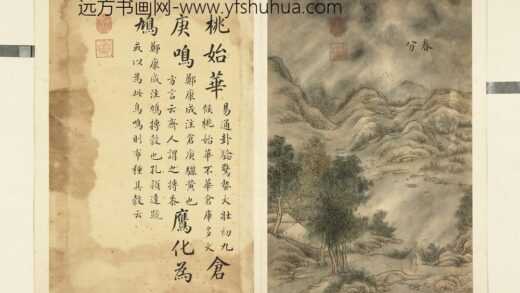 远方书画网- www.yfshuhua.com
春分
桃始華
易通卦驗驚蟄大壯初九
候桃始華不華倉庫多火
倉
庚鳴
鄭康成注倉庚驪黃也
方言云齊人謂之摶黍
鷹化為
鳩
鄭康成注鳩搏穀也孔穎達疏
或以為此鳥鳴則布種其穀云